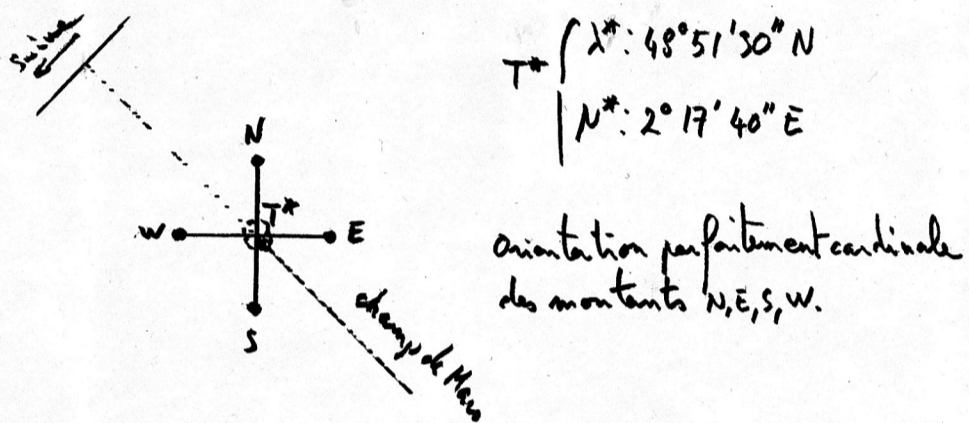 Seine
N
T*
W
E
S
champ de Mars
T*
λ*: 48°51'30" N
μ*: 2°17'40" E
orientation parfaitement cardinale
des montants N, E, S, W.